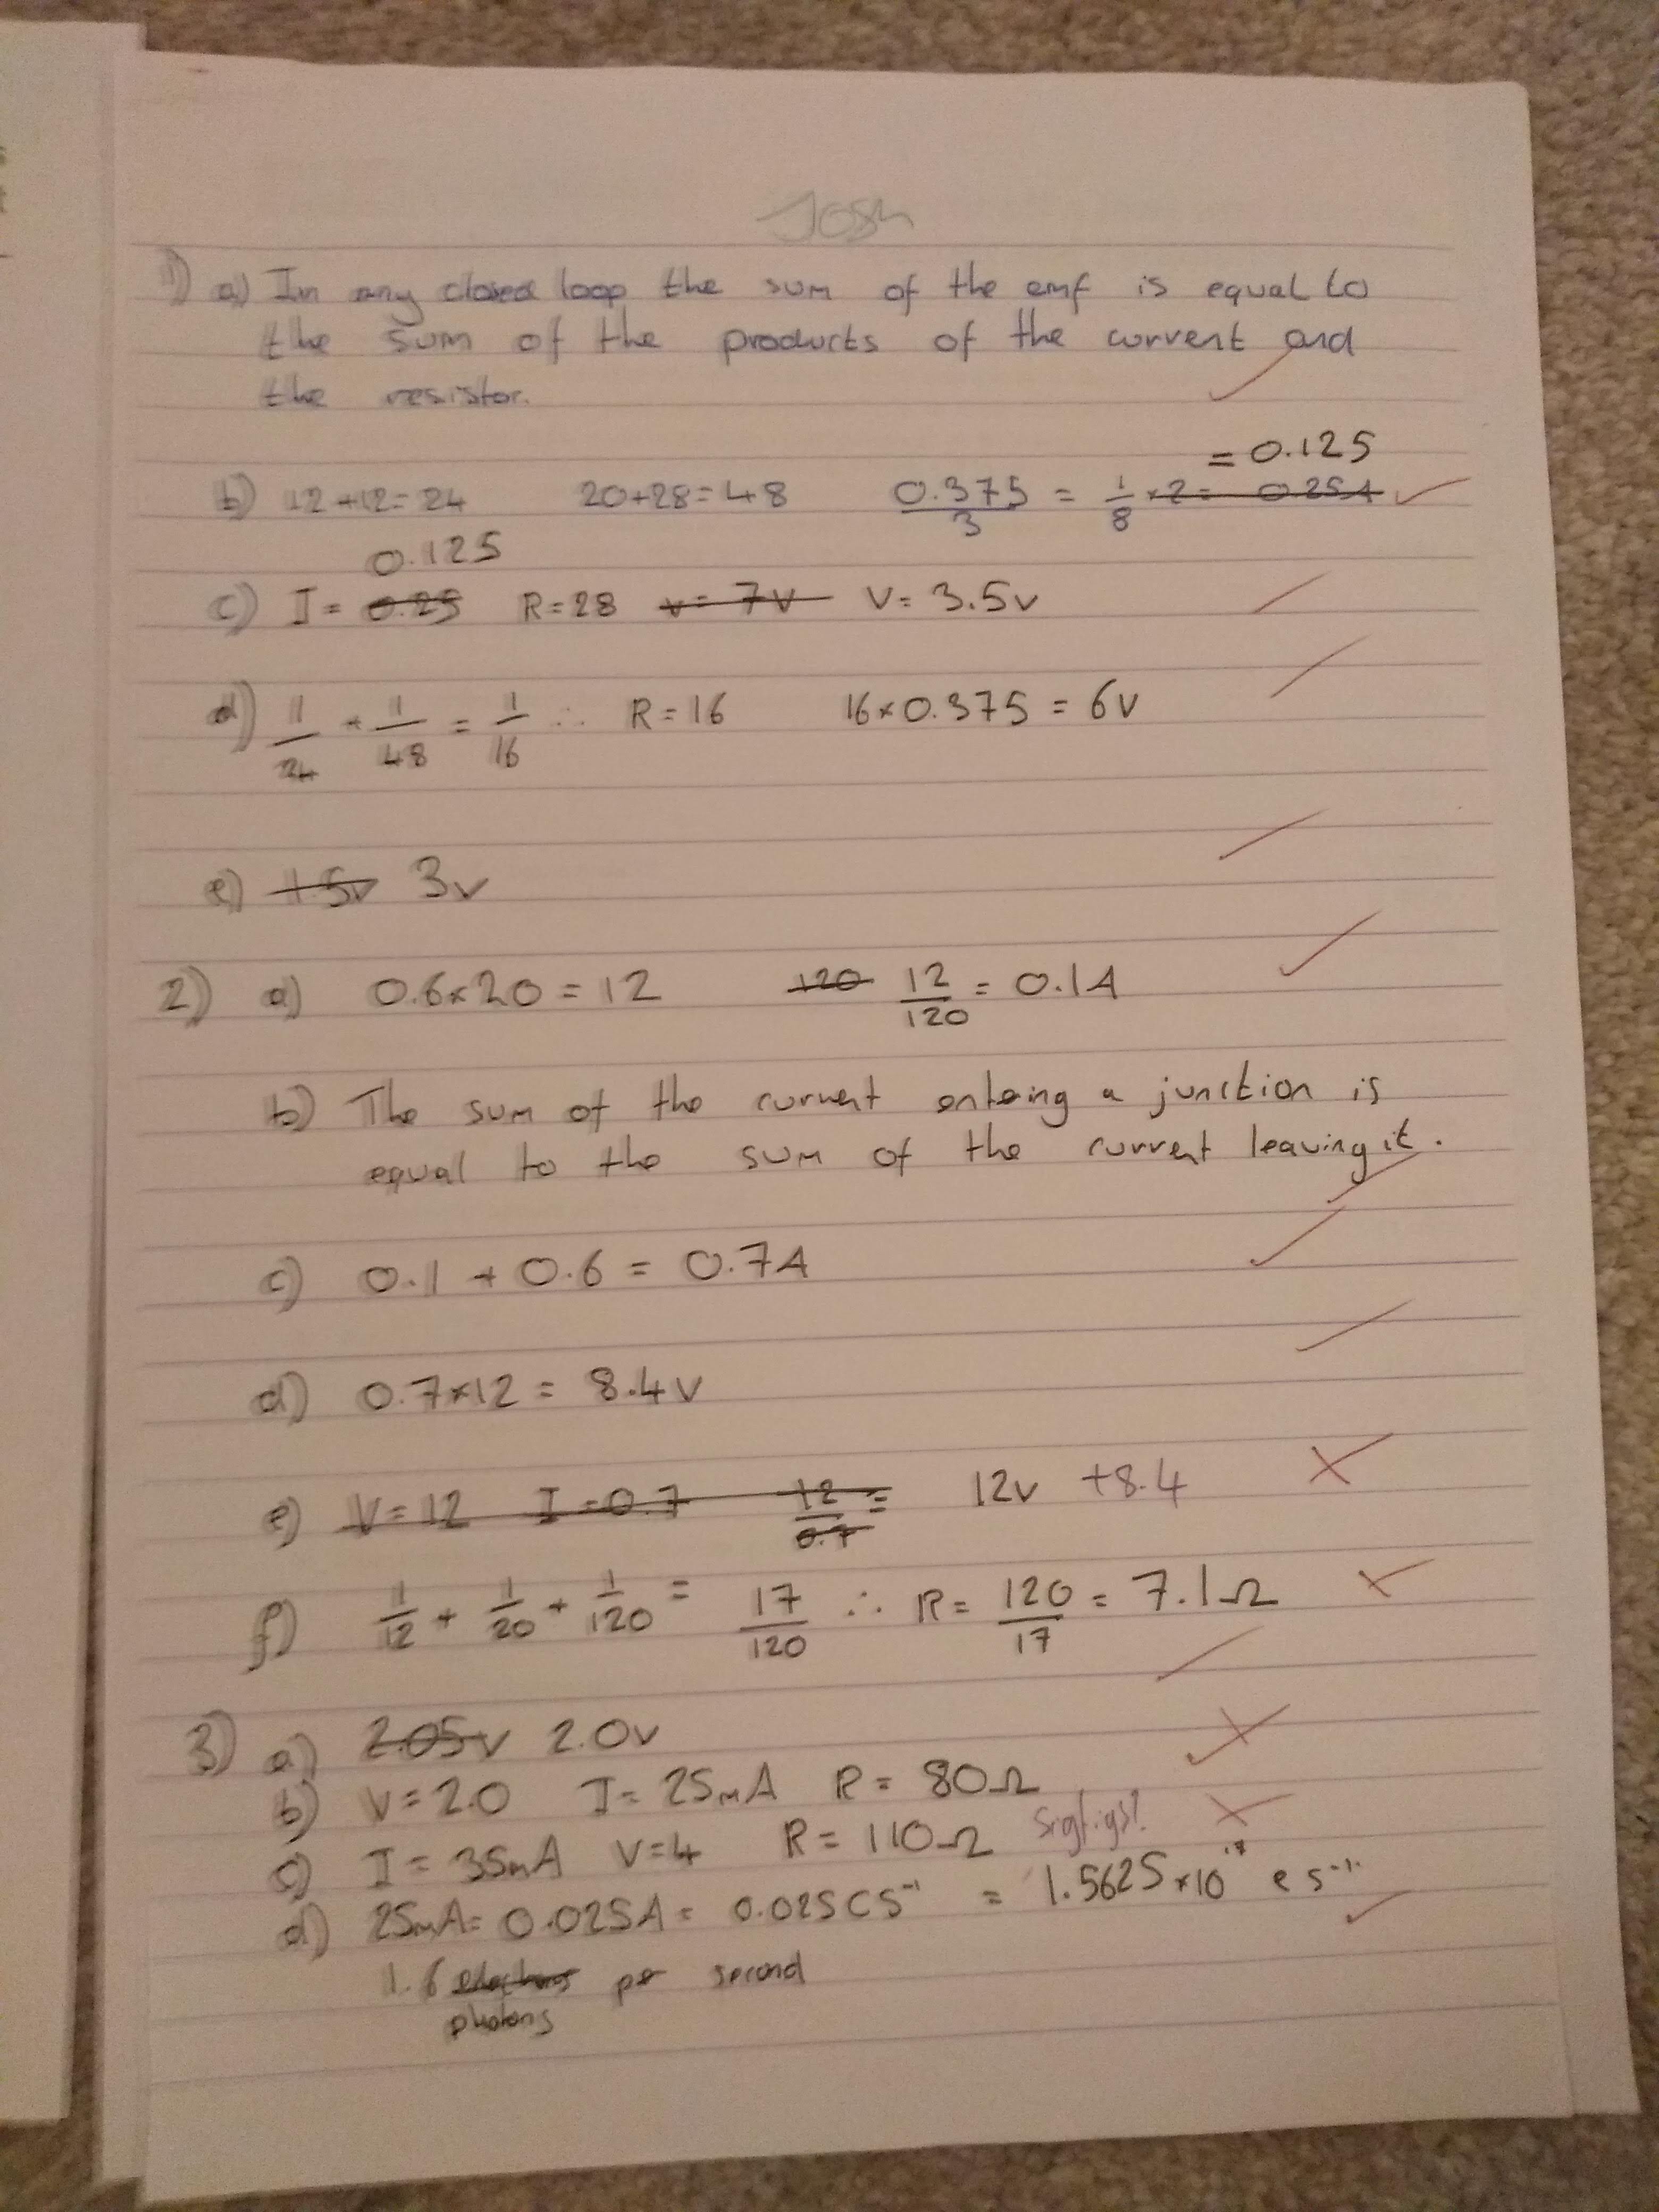 Josh
1) a) In any closed loop the sum of the emf is equal to
the sum of the products of the current and
the resistor.
= 0.125
b) 12+12=24 20+28=48 0.375/3 = 1/8 ×2= 0.25A
0.125
c) I= 0.25 R=28 v=7v V= 3.5v
d) 1/24 + 1/48 = 1/16 ∴ R=16 16×0.375 = 6v
e) 1.5v 3v
2) a) 0.6×20=12 120 12/120 = 0.1A
b) The sum of the current entering a junction is
equal to the sum of the current leaving it.
c) 0.1 + 0.6 = 0.7A
d) 0.7×12= 8.4v
e) V=12 I=0.7 12/0.7 = 12v +8.4
f) 1/12 + 1/20 + 1/120 = 17/120 ∴ R= 120/17 = 7.1Ω
3) a) 2.05v 2.0v
b) V=2.0 I= 25mA R= 80Ω
c) I= 35mA V=4 R= 110Ω Sigfigs?
d) 25mA= 0.025A= 0.025Cs⁻¹ = 1.5625×10¹⁷ e s⁻¹
1.6 electrons per second
photons